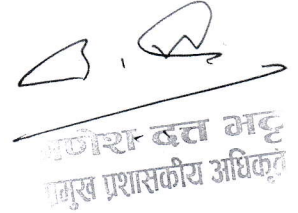 दत्त भट्ट
प्रमुख प्रशासकीय अधिकृत